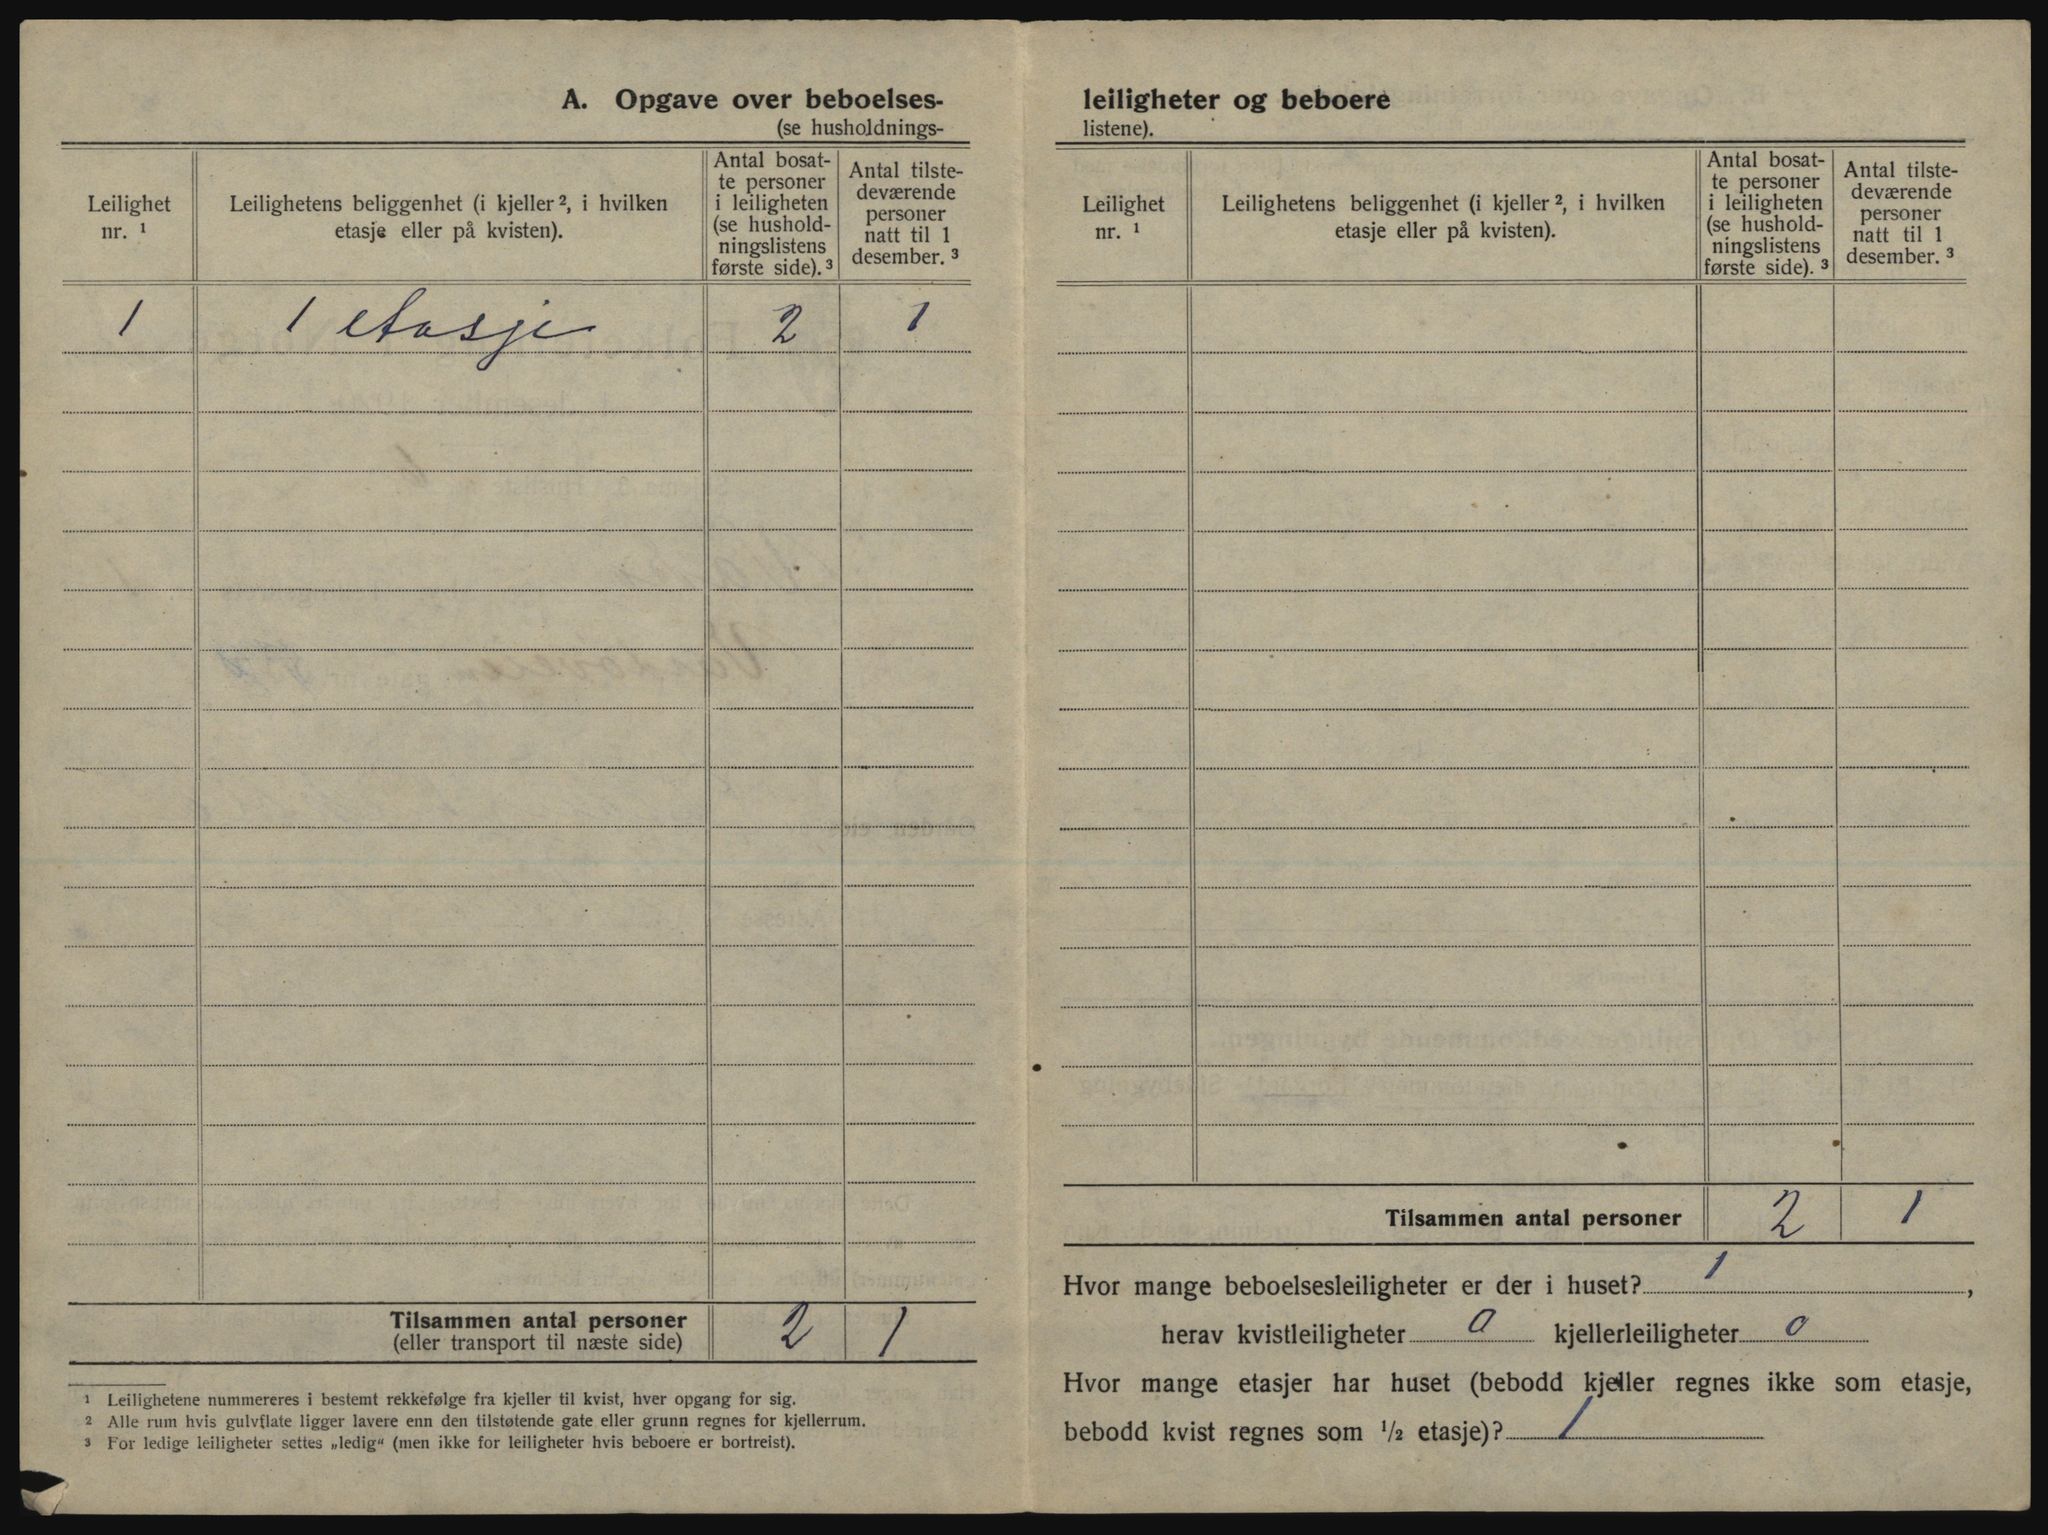 A. Opgave over beboelses-
(se husholdnings-
Leilighet
nr. ¹
Leilighetens beliggenhet (i kjeller ², i hvilken
etasje eller på kvisten).
Antal bosat-
te personer
i leiligheten
(se hushold-
ningslistens
første side). ³
Antal tilste-
deværende
personer
natt til 1
desember. ³
1 1 etasje 2 1
Tilsammen antal personer 2 1
(eller transport til næste side)
¹ Leilighetene nummereres i bestemt rekkefølge fra kjeller til kvist, hver opgang for sig.
² Alle rum hvis gulvflate ligger lavere enn den tilstøtende gate eller grunn regnes for kjellerrum.
³ For ledige leiligheter settes „ledig“ (men ikke for leiligheter hvis beboere er bortreist).
leiligheter og beboere
listene).
Leilighet
nr. ¹
Leilighetens beliggenhet (i kjeller ², i hvilken
etasje eller på kvisten).
Antal bosat-
te personer
i leiligheten
(se hushold-
ningslistens
første side). ³
Antal tilste-
deværende
personer
natt til 1
desember. ³
Tilsammen antal personer 2 1
Hvor mange beboelsesleiligheter er der i huset? 1,
herav kvistleiligheter 0 kjellerleiligheter 0
Hvor mange etasjer har huset (bebodd kjeller regnes ikke som etasje,
bebodd kvist regnes som ½ etasje)? 1